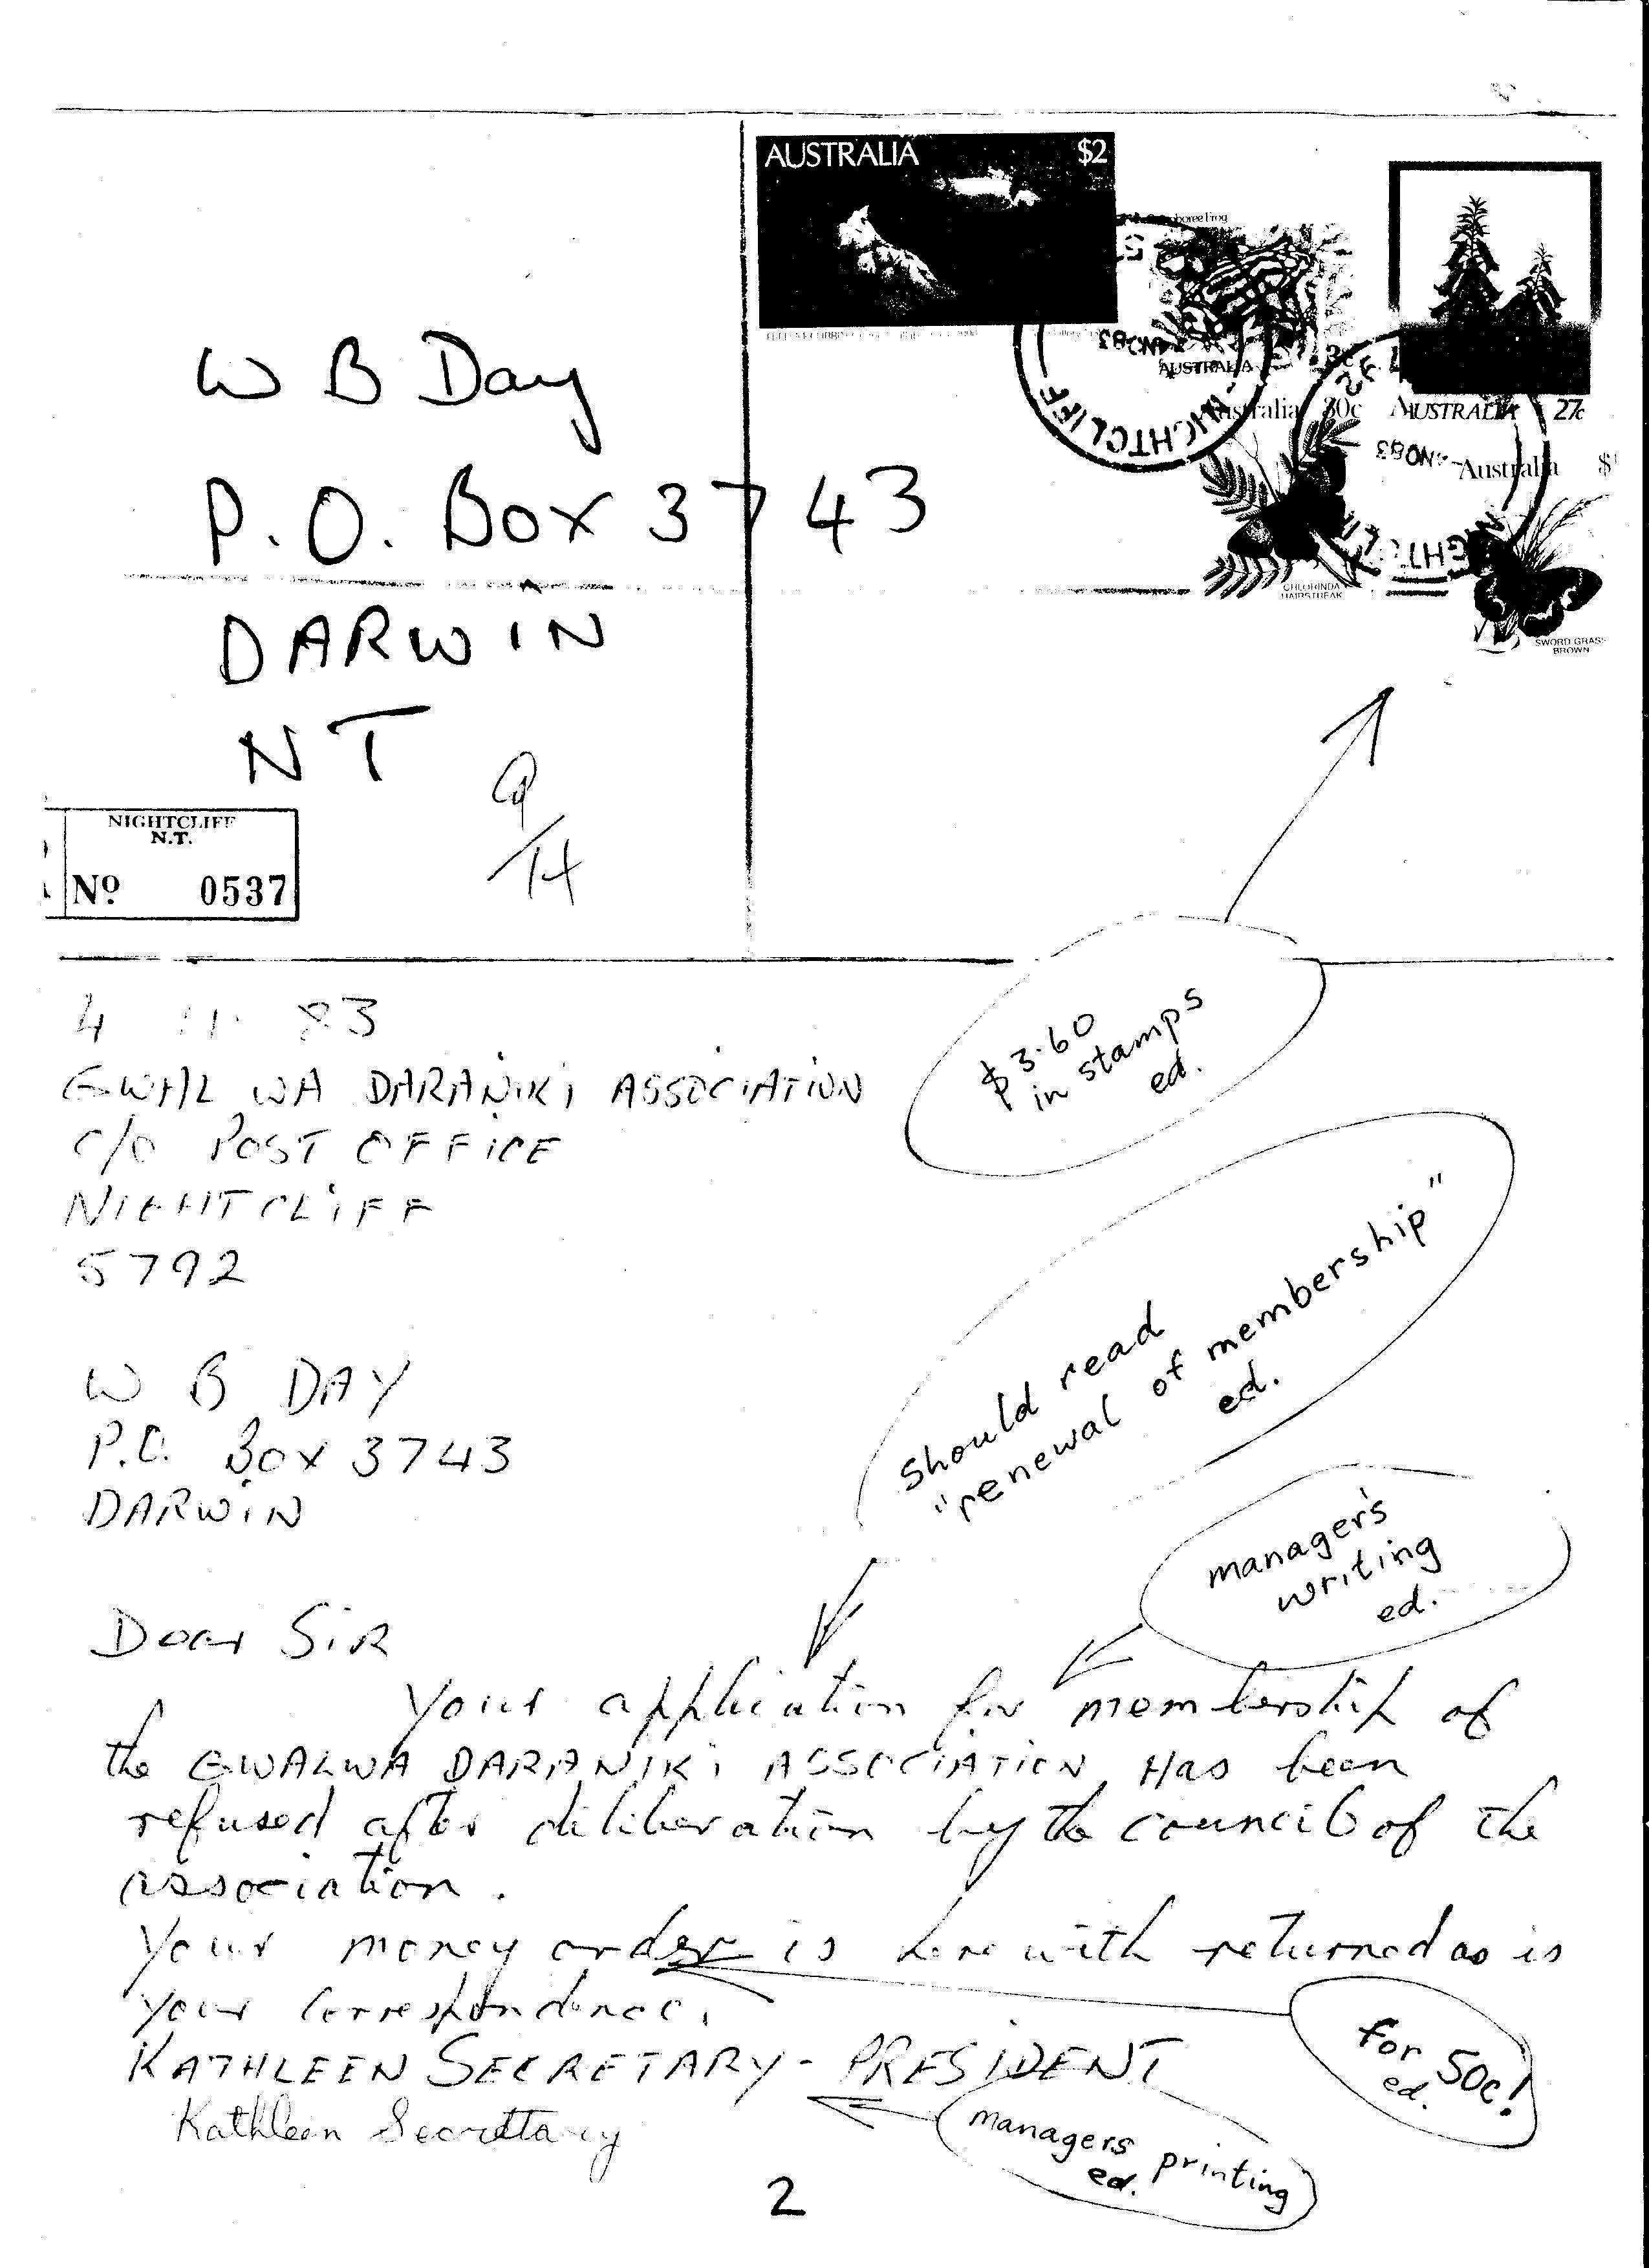 AUSTRALIA $2
AUSTRALIA 3c
Australia 30c
AUSTRALIA 27c
Australia
NIGHTCLIFF
NIGHTCLIFF
CHLORINDA
HAIRSTREAK
SWORD GRASS
BROWN
W B Day
P.O. Box 3743
DARWIN
NT
NIGHTCLIFF
N.T.
Nº 0537
$3.60
in stamps
ed.
4 11 83
GWAL WA DARANIKI ASSOCIATION
C/O POST OFFICE
NIGHTCLIFF
5792
should read
"renewal of membership"
ed.
W B DAY
P.O. Box 3743
DARWIN
manager's
writing
ed.
Dear SiR
Your application for membership of
the GWALWA DARANIKI ASSOCIATION Has been
refused after deliberation by the council of the
association.
Your money order is herewith returned as is
your correspondence.
for 50c!
ed.
KATHLEEN SECRETARY - PRESIDENT
Kathleen Secrettary
managers printing
ed.
2